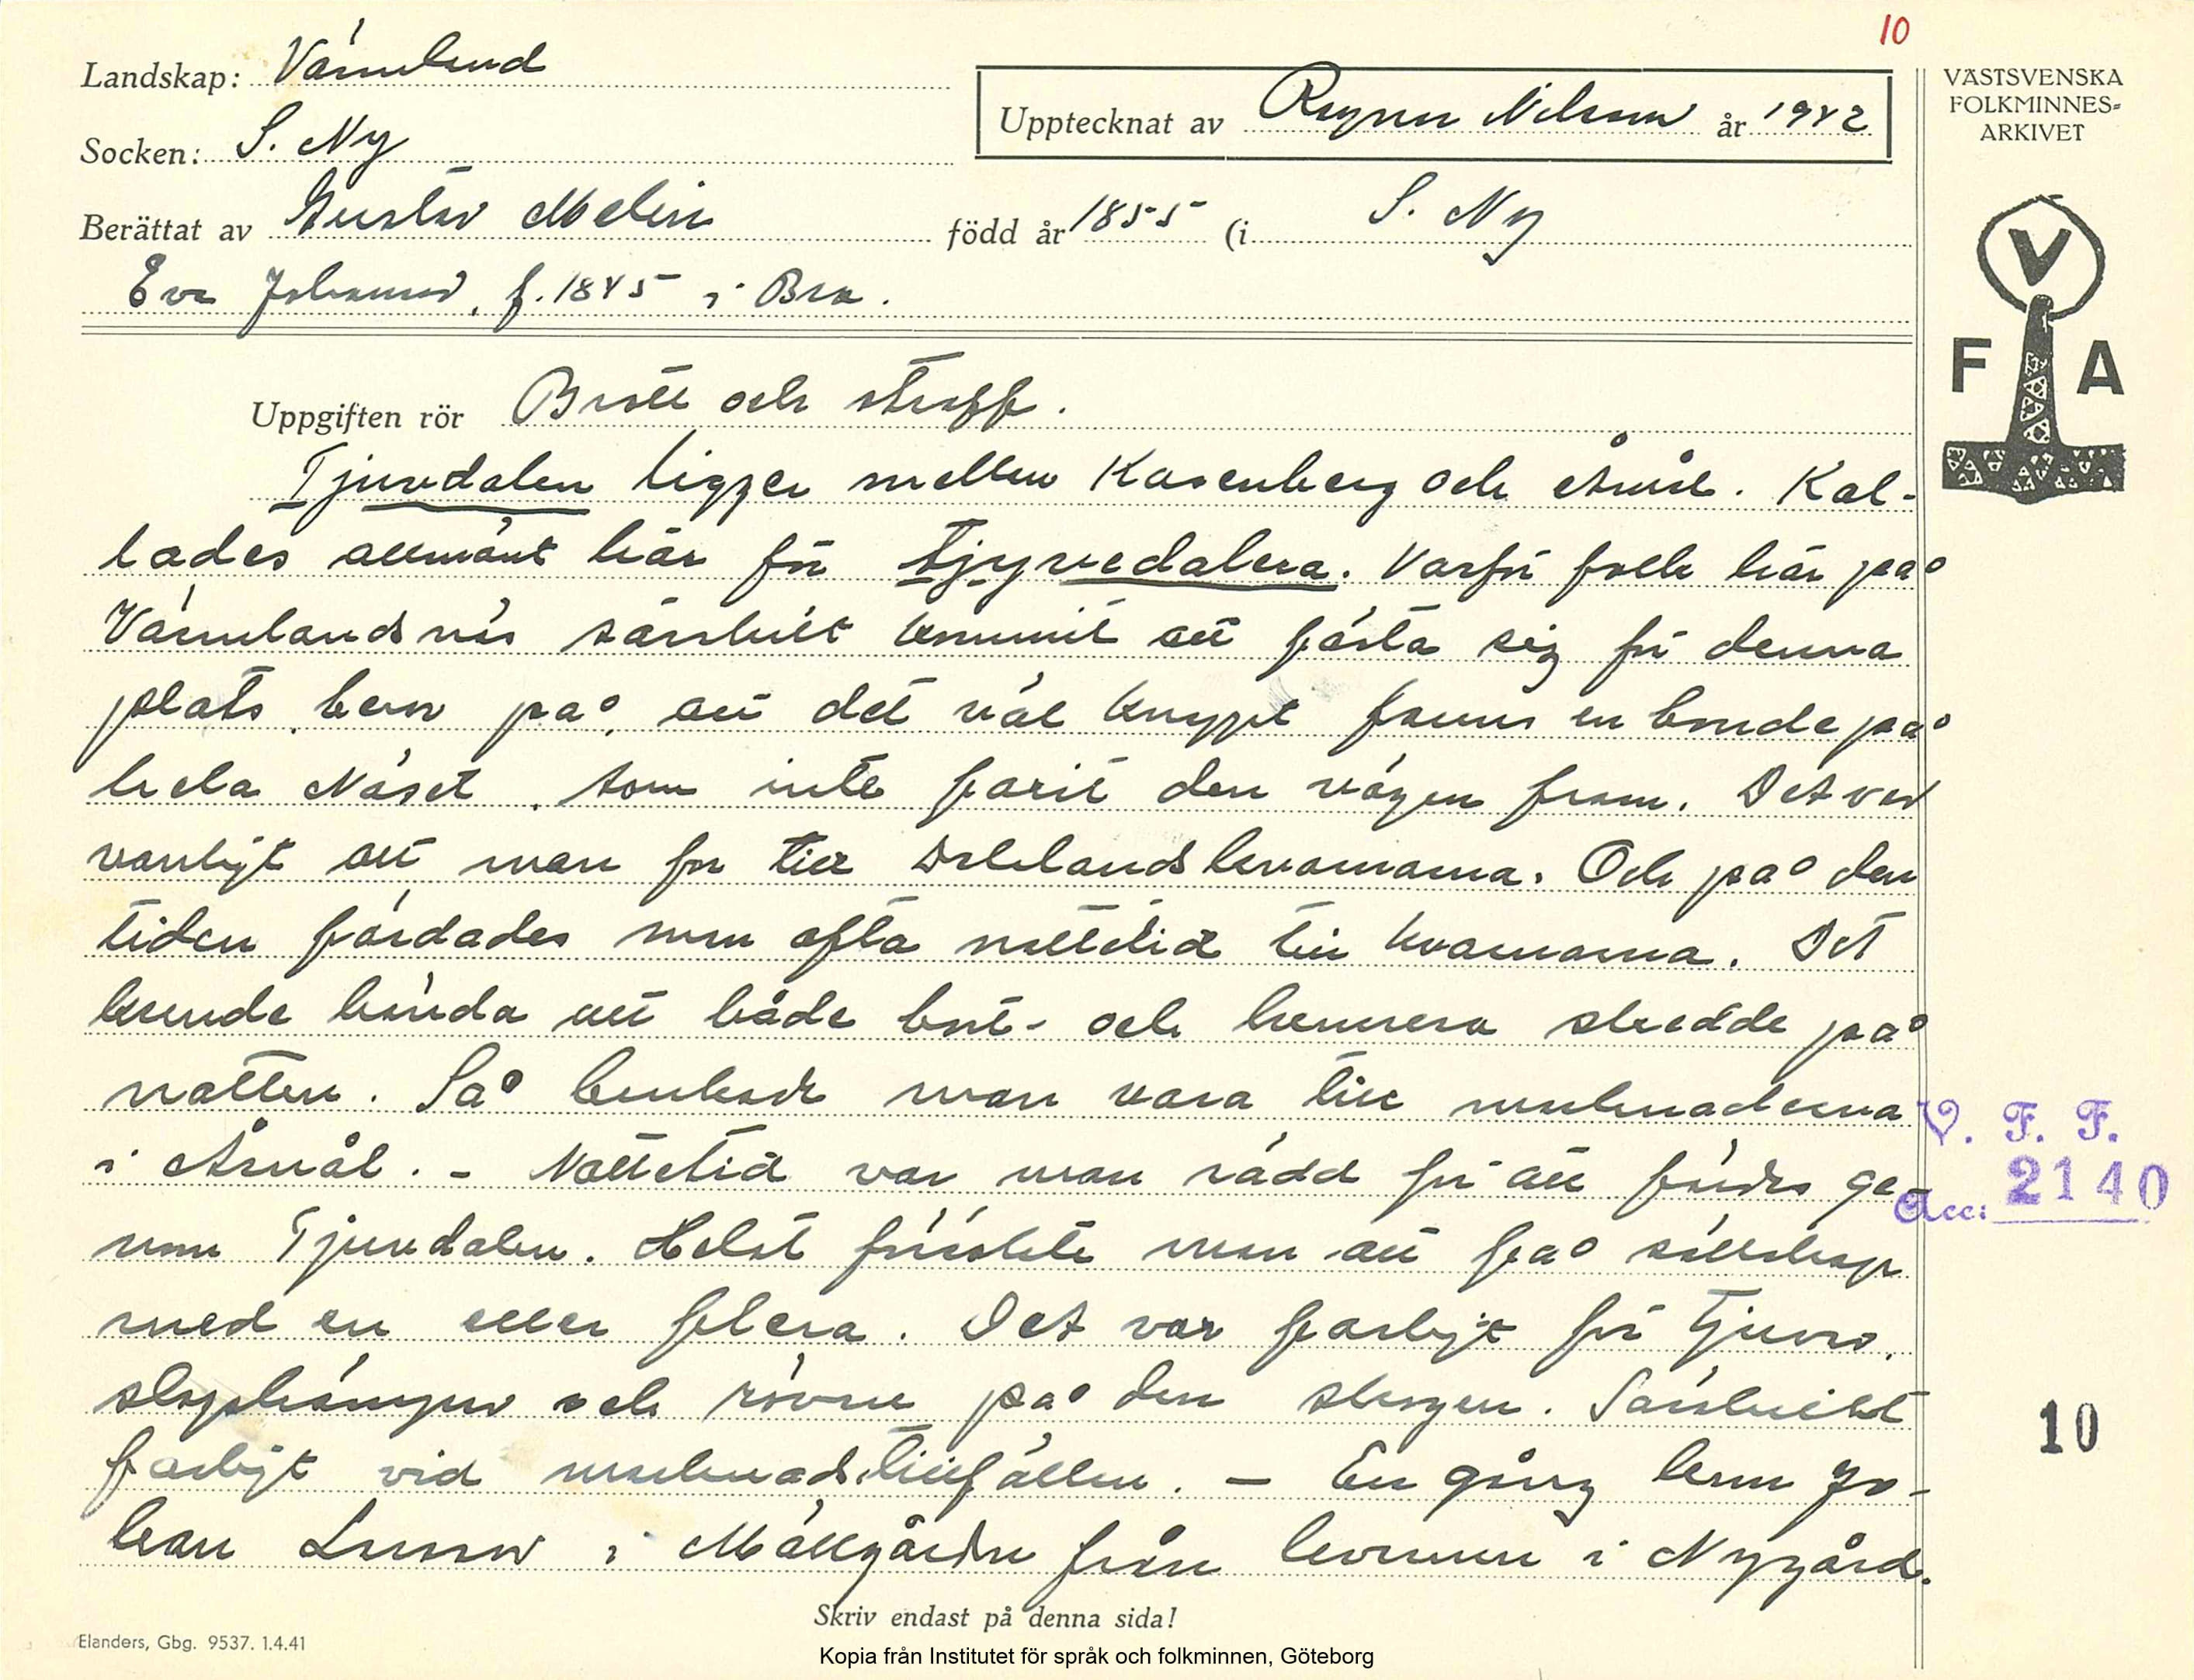 10
Landskap: Värmland
Socken: S. Ny
Upptecknat av Ragnar Nilsson år 1942
VÄSTSVENSKA
FOLKMINNES-
ARKIVET
Berättat av Gustav Melin född år 1855 (i S. Ny
Eva Johansson, f. 1845 i Bro.
V
F A
Uppgiften rör Brott och straff.
Tjuvdalen ligger mellan Kasenberg och Åmål. Kal-
lades allmänt här för tjyvedalera. Varför folk här på
Värmlandsnäs särskilt kommit att fästa sig för denna
plats beror på, att det väl knappt fanns en bonde på
hela Näset, som inte farit den vägen fram. Det var
vanligt att man for till Dalslandskvarnarna. Och på den
tiden färdades man ofta nattetid till kvarnarna. Det
kunde hända att både bort- och hemresa skedde på
natten. Så brukade man vara till marknaderna
i Åmål. - Nattetid var man rädd för att färdas ge-
nom Tjuvdalen. Helst försökte man att få sällskap
med en eller flera. Det var farligt för tjuvar,
slagskämpar och rövare på den skogen. Särskilt
farligt vid marknadstillfällen. — En gång kom Jo-
han Larsson i Mällgården från kvarnen i Nygård.
V. F. F.
Acc: 2140
10
Skriv endast på denna sida!
Elanders, Gbg. 9537. 1.4.41
Kopia från Institutet för språk och folkminnen, Göteborg